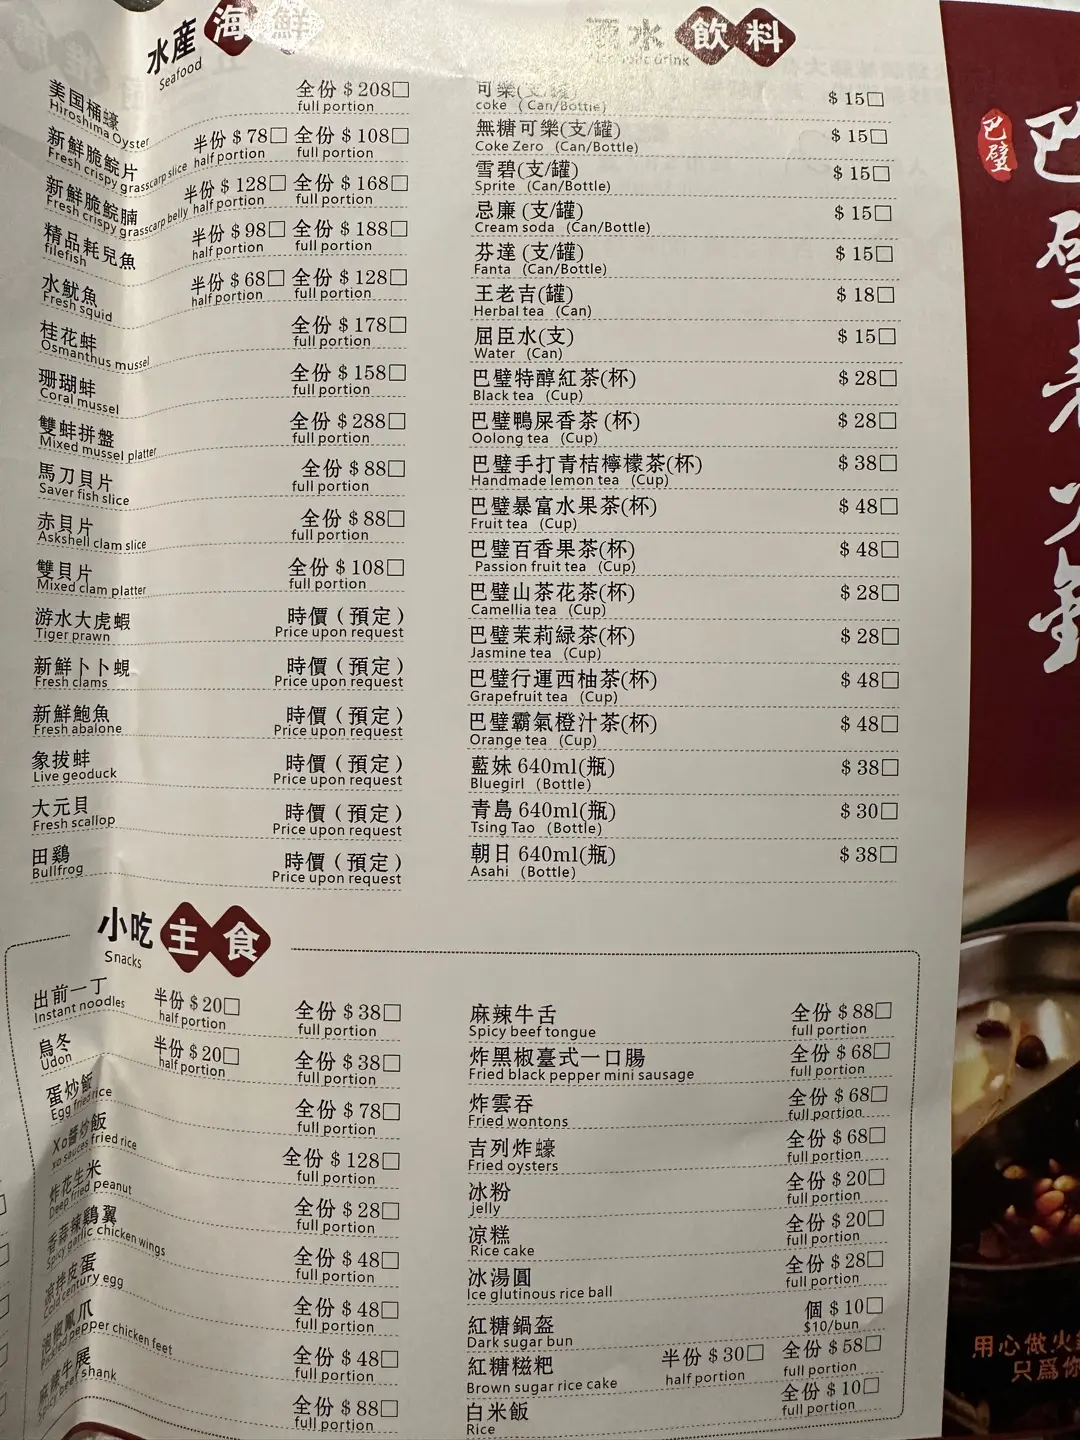 水産海鮮
Seafood
美国桶蠔 全份 $ 208□
Hiroshima Oyster full portion
新鮮脆鯇片 半份 $ 78□ 全份 $ 108□
Fresh crispy grasscarp slice half portion full portion
新鮮脆鯇腩 半份 $ 128□ 全份 $ 168□
Fresh crispy grasscarp belly half portion full portion
精品耗兒魚 半份 $ 98□ 全份 $ 188□
filefish half portion full portion
水魷魚 半份 $ 68□ 全份 $ 128□
Fresh squid half portion full portion
桂花蚌 全份 $ 178□
Osmanthus mussel full portion
珊瑚蚌 全份 $ 158□
Coral mussel full portion
雙蚌拼盤 全份 $ 288□
Mixed mussel platter full portion
馬刀貝片 全份 $ 88□
Saver fish slice full portion
赤貝片 全份 $ 88□
Askshell clam slice full portion
雙貝片 全份 $ 108□
Mixed clam platter full portion
游水大虎蝦 時價（預定）
Tiger prawn Price upon request
新鮮卜卜蜆 時價（預定）
Fresh clams Price upon request
新鮮鮑魚 時價（預定）
Fresh abalone Price upon request
象拔蚌 時價（預定）
Live geoduck Price upon request
大元貝 時價（預定）
Fresh scallop Price upon request
田鷄 時價（預定）
Bullfrog Price upon request
水飲料
drink
可樂(支/罐) $ 15□
coke (Can/Bottle)
無糖可樂(支/罐) $ 15□
Coke Zero (Can/Bottle)
雪碧(支/罐) $ 15□
Sprite (Can/Bottle)
忌廉 (支/罐) $ 15□
Cream soda (Can/Bottle)
芬達 (支/罐) $ 15□
Fanta (Can/Bottle)
王老吉(罐) $ 18□
Herbal tea (Can)
屈臣水(支) $ 15□
Water (Can)
巴璧特醇紅茶(杯) $ 28□
Black tea (Cup)
巴璧鴨屎香茶 (杯) $ 28□
Oolong tea (Cup)
巴璧手打青桔檸檬茶(杯) $ 38□
Handmade lemon tea (Cup)
巴璧暴富水果茶(杯) $ 48□
Fruit tea (Cup)
巴璧百香果茶(杯) $ 48□
Passion fruit tea (Cup)
巴璧山茶花茶(杯) $ 28□
Camellia tea (Cup)
巴璧茉莉緑茶(杯) $ 28□
Jasmine tea (Cup)
巴璧行運西柚茶(杯) $ 48□
Grapefruit tea (Cup)
巴璧霸氣橙汁茶(杯) $ 48□
Orange tea (Cup)
藍妹 640ml(瓶) $ 38□
Bluegirl (Bottle)
青島 640ml(瓶) $ 30□
Tsing Tao (Bottle)
朝日 640ml(瓶) $ 38□
Asahi (Bottle)
小吃主食
Snacks
出前一丁 半份 $ 20□ 全份 $ 38□
Instant noodles half portion full portion
烏冬 半份 $ 20□ 全份 $ 38□
Udon half portion full portion
蛋炒飯 全份 $ 78□
Egg fried rice full portion
Xo醬炒飯 全份 $ 128□
xo sauces fried rice full portion
炸花生米 全份 $ 28□
Deep fried peanut full portion
香蒜辣鷄翼 全份 $ 48□
Spicy garlic chicken wings full portion
凉拌皮蛋 全份 $ 48□
Cold century egg full portion
泡椒鳳爪 全份 $ 48□
Pickled pepper chicken feet full portion
麻辣牛展 全份 $ 88□
Spicy beef shank full portion
麻辣牛舌 全份 $ 88□
Spicy beef tongue full portion
炸黑椒臺式一口腸 全份 $ 68□
Fried black pepper mini sausage full portion
炸雲吞 全份 $ 68□
Fried wontons full portion
吉列炸蠔 全份 $ 68□
Fried oysters full portion
冰粉 全份 $ 20□
jelly full portion
凉糕 全份 $ 20□
Rice cake full portion
冰湯圓 全份 $ 28□
Ice glutinous rice ball full portion
紅糖鍋盔 個 $ 10□
Dark sugar bun $10/bun
紅糖糍粑 半份 $ 30□ 全份 $ 58□
Brown sugar rice cake half portion full portion
白米飯 全份 $ 10□
Rice full portion
巴璧
巴璧老火鍋
用心做火
只爲你